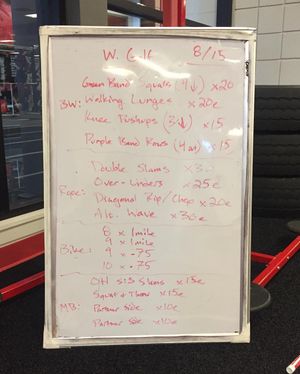 8/15
Green Band Squats (4↓) x20
BW: Walking Lunges x20e
Knee Pushups (3↓) x15
Purple Band Rows (4 on) x15
Double Slams x30
Rope: Over-Unders x25e
Diagonal Rip/Chop x20e
Alt. Wave x30e
8 x 1mile
Bike: 9 x 1mile
9 x .75
10 x .75
OH SS Slams x15e
Squat + Throw x15e
MB: Partner Side x10e
Partner Side x10e